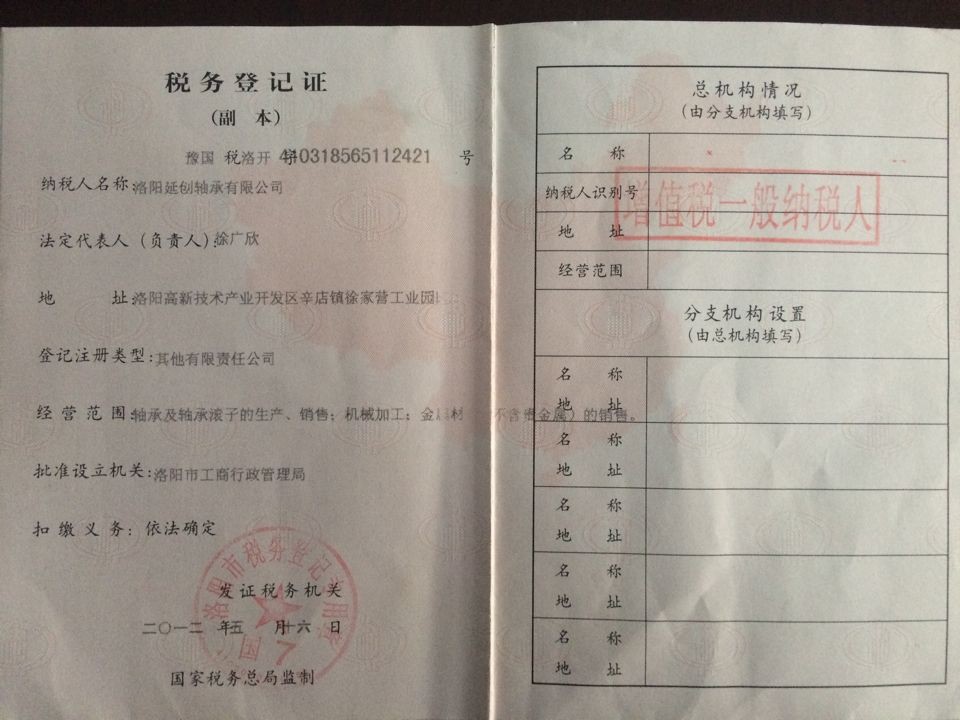 税务登记证
(副 本)
豫国 税洛开 字410318565112421 号
纳税人名称:洛阳延创轴承有限公司
法定代表人（负责人):徐广欣
地 址:洛阳高新技术产业开发区辛店镇徐家营工业园
登记注册类型:其他有限责任公司
经营范围:轴承及轴承滚子的生产、销售；机械加工；金属材 不含贵金属）的销售。
批准设立机关:洛阳市工商行政管理局
扣缴义务:依法确定
洛阳市税务登记
发证税务机关
二〇一二 年五 月十六 日
7
国家税务总局监制
总机构情况
(由分支机构填写)
名 称
纳税人识别号
增值税一般纳税人
地 址
经营范围
分支机构设置
(由总机构填写)
名 称
地 址
名 称
地 址
名 称
地 址
名 称
地 址
名 称
地 址